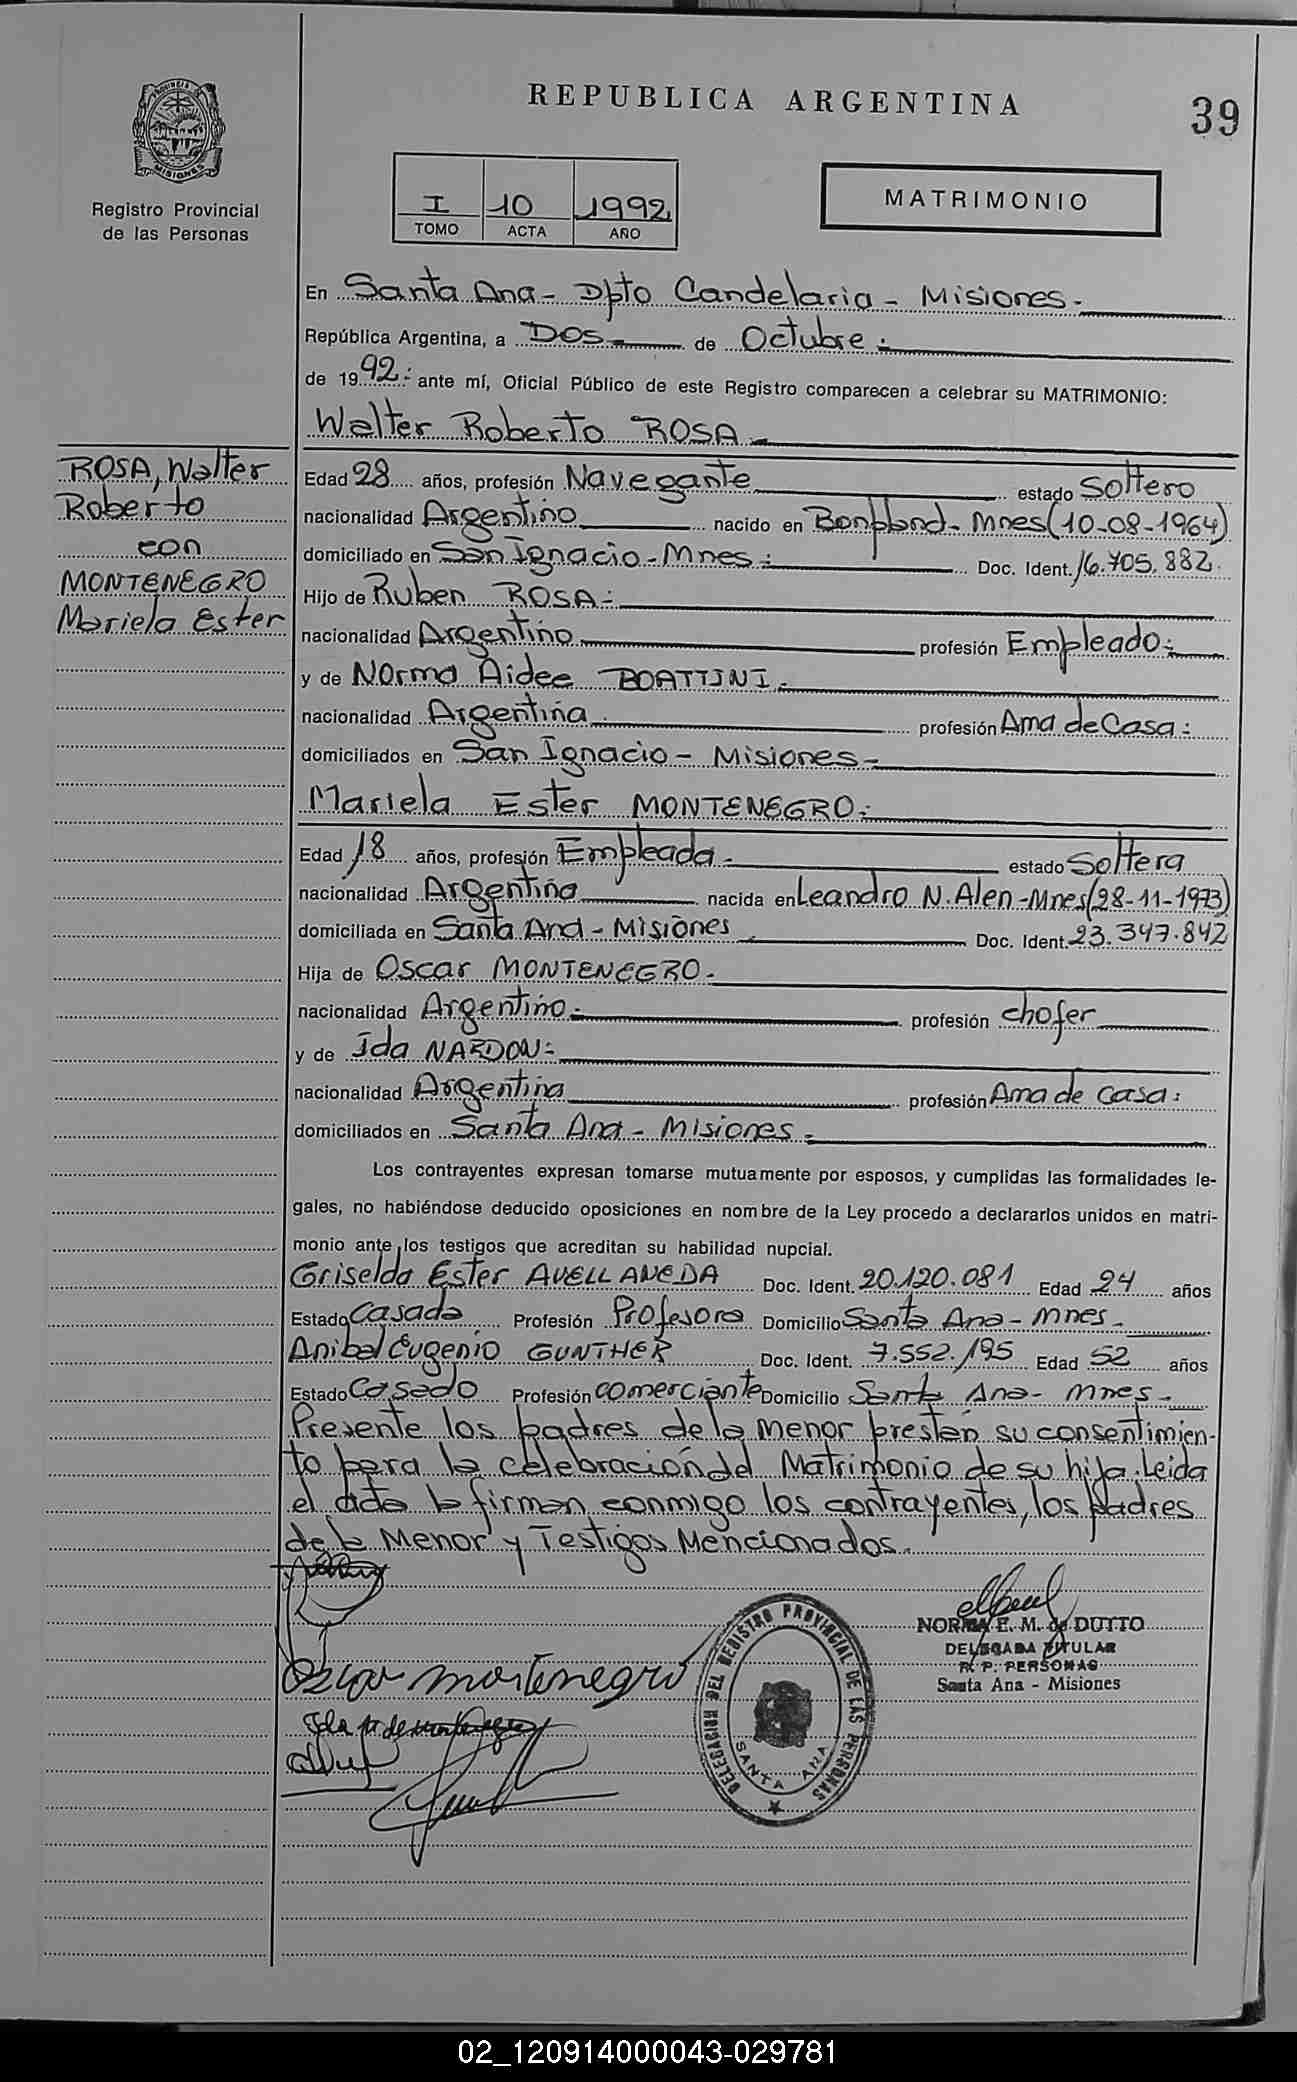 REPUBLICA ARGENTINA
39
PROVINCIA DE
MISIONES
Registro Provincial
de las Personas
I 10 1992
TOMO ACTA AÑO
MATRIMONIO
En Santa Ana - Dpto Candelaria - Misiones.-
República Argentina, a DOS de Octubre:
de 1992: ante mí, Oficial Público de este Registro comparecen a celebrar su MATRIMONIO:
Walter Roberto ROSA.-
ROSA, Walter
Roberto
con
MONTENEGRO
Mariela Ester
Edad 28 años, profesión Navegante estado Soltero
nacionalidad Argentino nacido en Bonpland - Mnes (10-08-1964)
domiciliado en San Ignacio - Mnes: Doc. Ident. 16.705.882.
Hijo de Ruben ROSA:
nacionalidad Argentino profesión Empleado:
y de Norma Aidee BOATTINI.
nacionalidad Argentina profesión Ama de Casa:
domiciliados en San Ignacio - Misiones -
Mariela Ester MONTENEGRO:
Edad 18 años, profesión Empleada. estado Soltera
nacionalidad Argentina nacida en Leandro N. Alen - Mnes (28-11-1973)
domiciliada en Santa Ana - Misiones Doc. Ident. 23.347.842
Hija de Oscar MONTENEGRO.
nacionalidad Argentino. profesión chofer
y de Ida NARDON:
nacionalidad Argentina profesión Ama de casa:
domiciliados en Santa Ana - Misiones.
Los contrayentes expresan tomarse mutuamente por esposos, y cumplidas las formalidades le-
gales, no habiéndose deducido oposiciones en nombre de la Ley procedo a declararlos unidos en matri-
monio ante los testigos que acreditan su habilidad nupcial.
Griselda Ester AVELLANEDA Doc. Ident. 20.120.081 Edad 24 años
Estado Casada Profesión Profesora Domicilio Santa Ana - Mnes.
Anibal Eugenio GUNTHER Doc. Ident. 7.552.195 Edad 52 años
Estado Casado Profesión comerciante Domicilio Santa Ana - Mnes.
Presente los padres de la menor prestan su consentimien-
to para la celebración del Matrimonio de su hija. Leida
el acta la firman conmigo los contrayentes, los padres
de la Menor y Testigos Mencionados.
NORMA E. M. de DUTTO
DELEGADA TITULAR
R. P. PERSONAS
Santa Ana - Misiones
Oscar Montenegro
DELEGACION DEL REGISTRO PROVINCIAL DE LAS PERSONAS
SANTA ANA
02_120914000043-029781